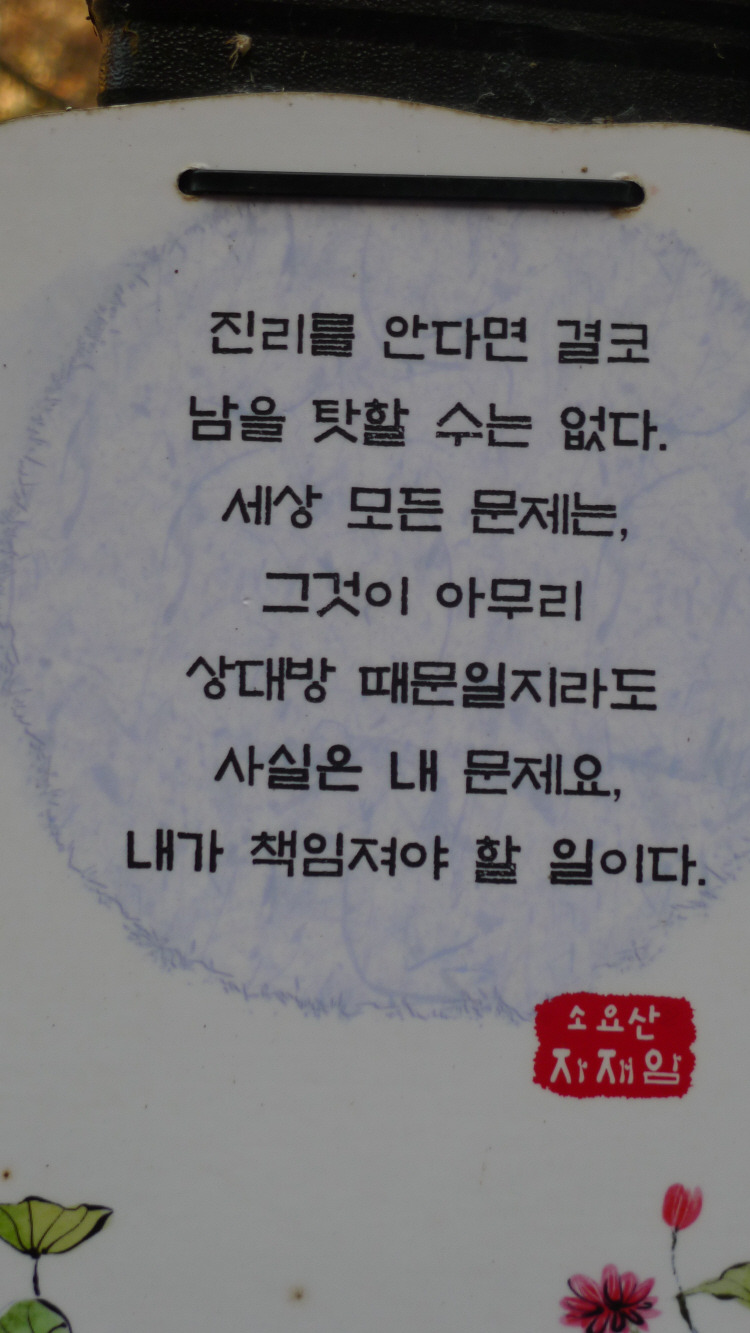 진리를 안다면 결코
남을 탓할 수는 없다.
세상 모든 문제는,
그것이 아무리
상대방 때문일지라도
사실은 내 문제요,
내가 책임져야 할 일이다.
소요산
자재암